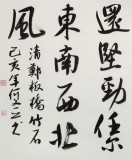 還堅勁任
東南西北
風
清鄭板橋竹石
己亥年何